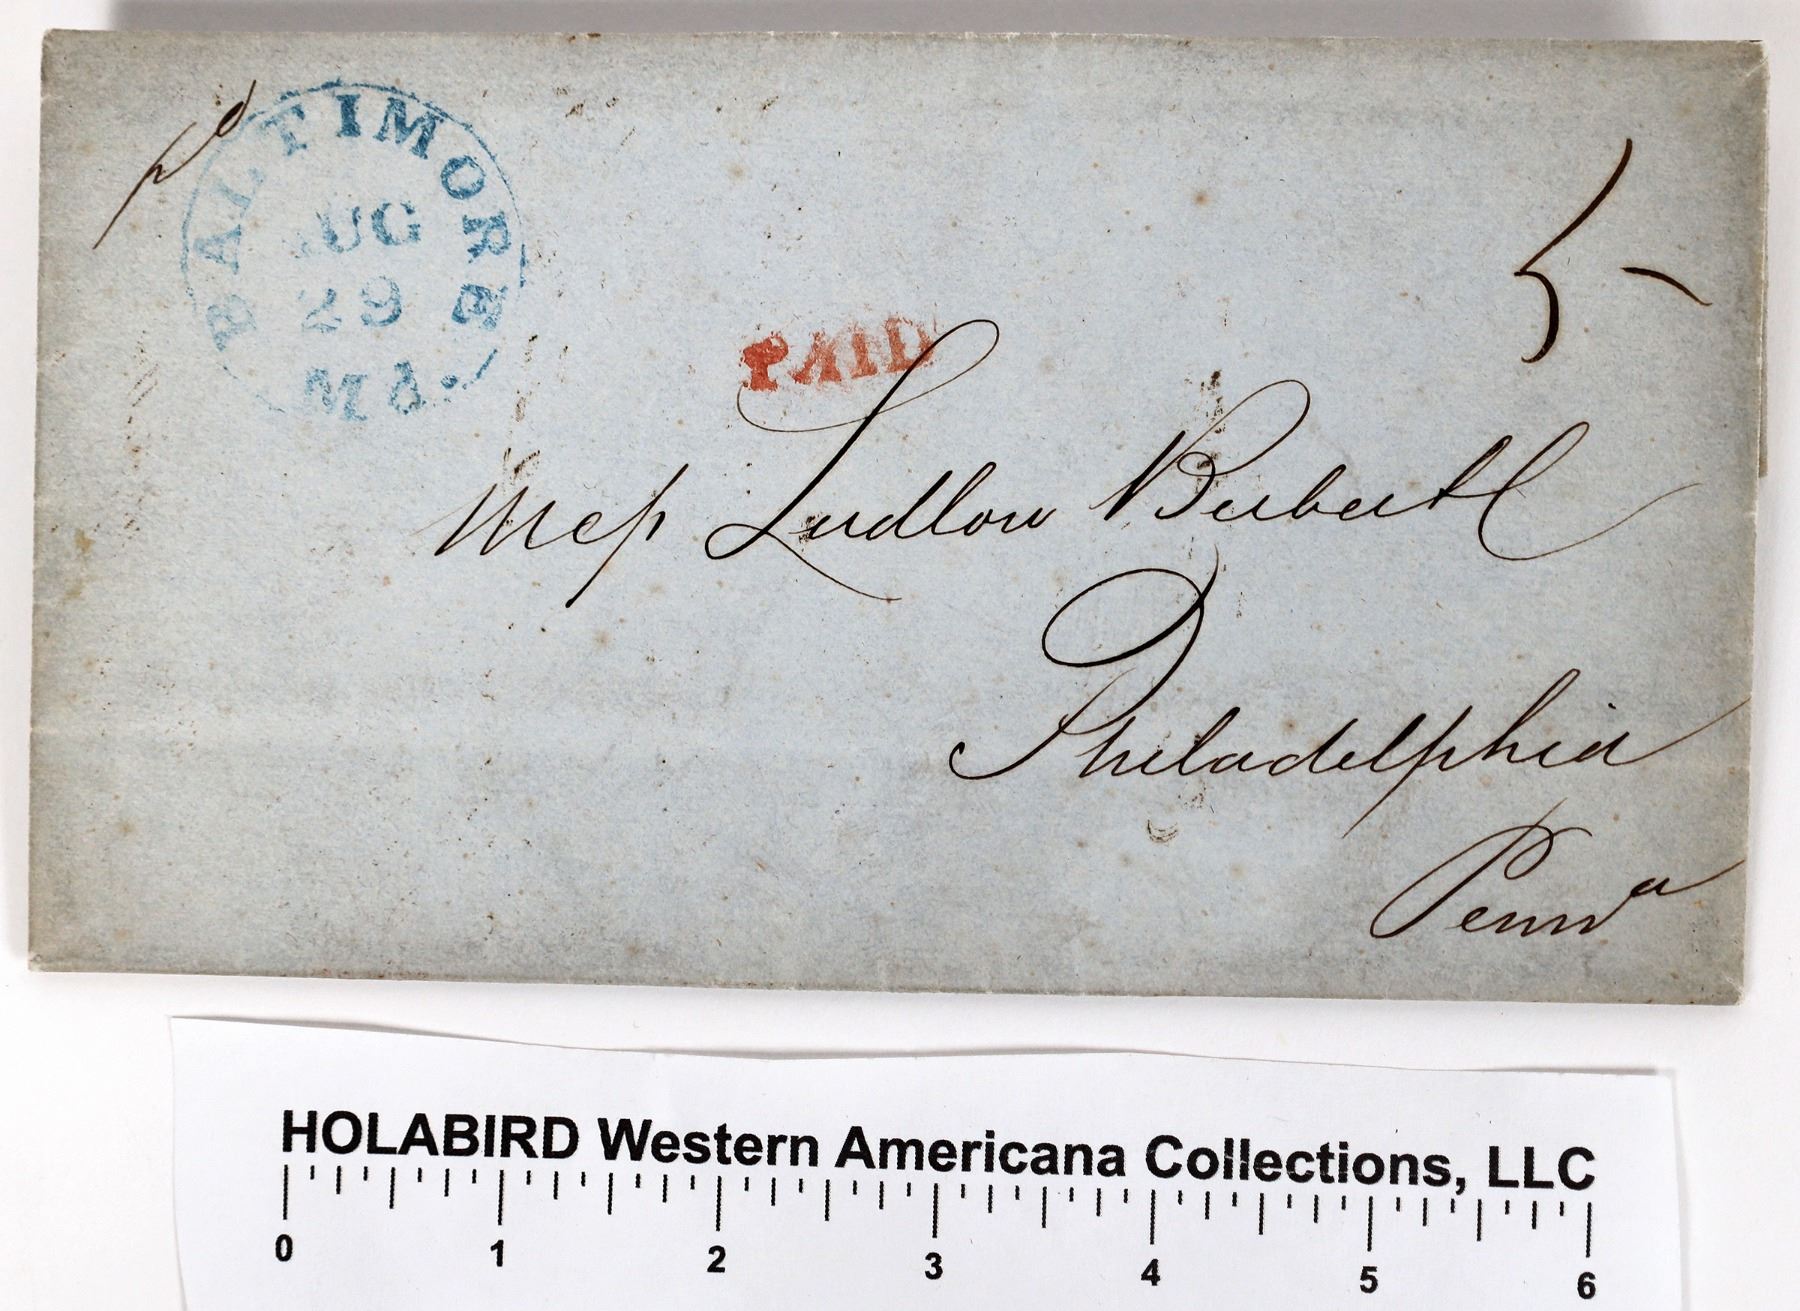 pd
BALTIMORE Md.
AUG
29
5
PAID
Mess Ludlow
Philadelphia
Penna
HOLABIRD Western Americana Collections, LLC
0 1 2 3 4 5 6